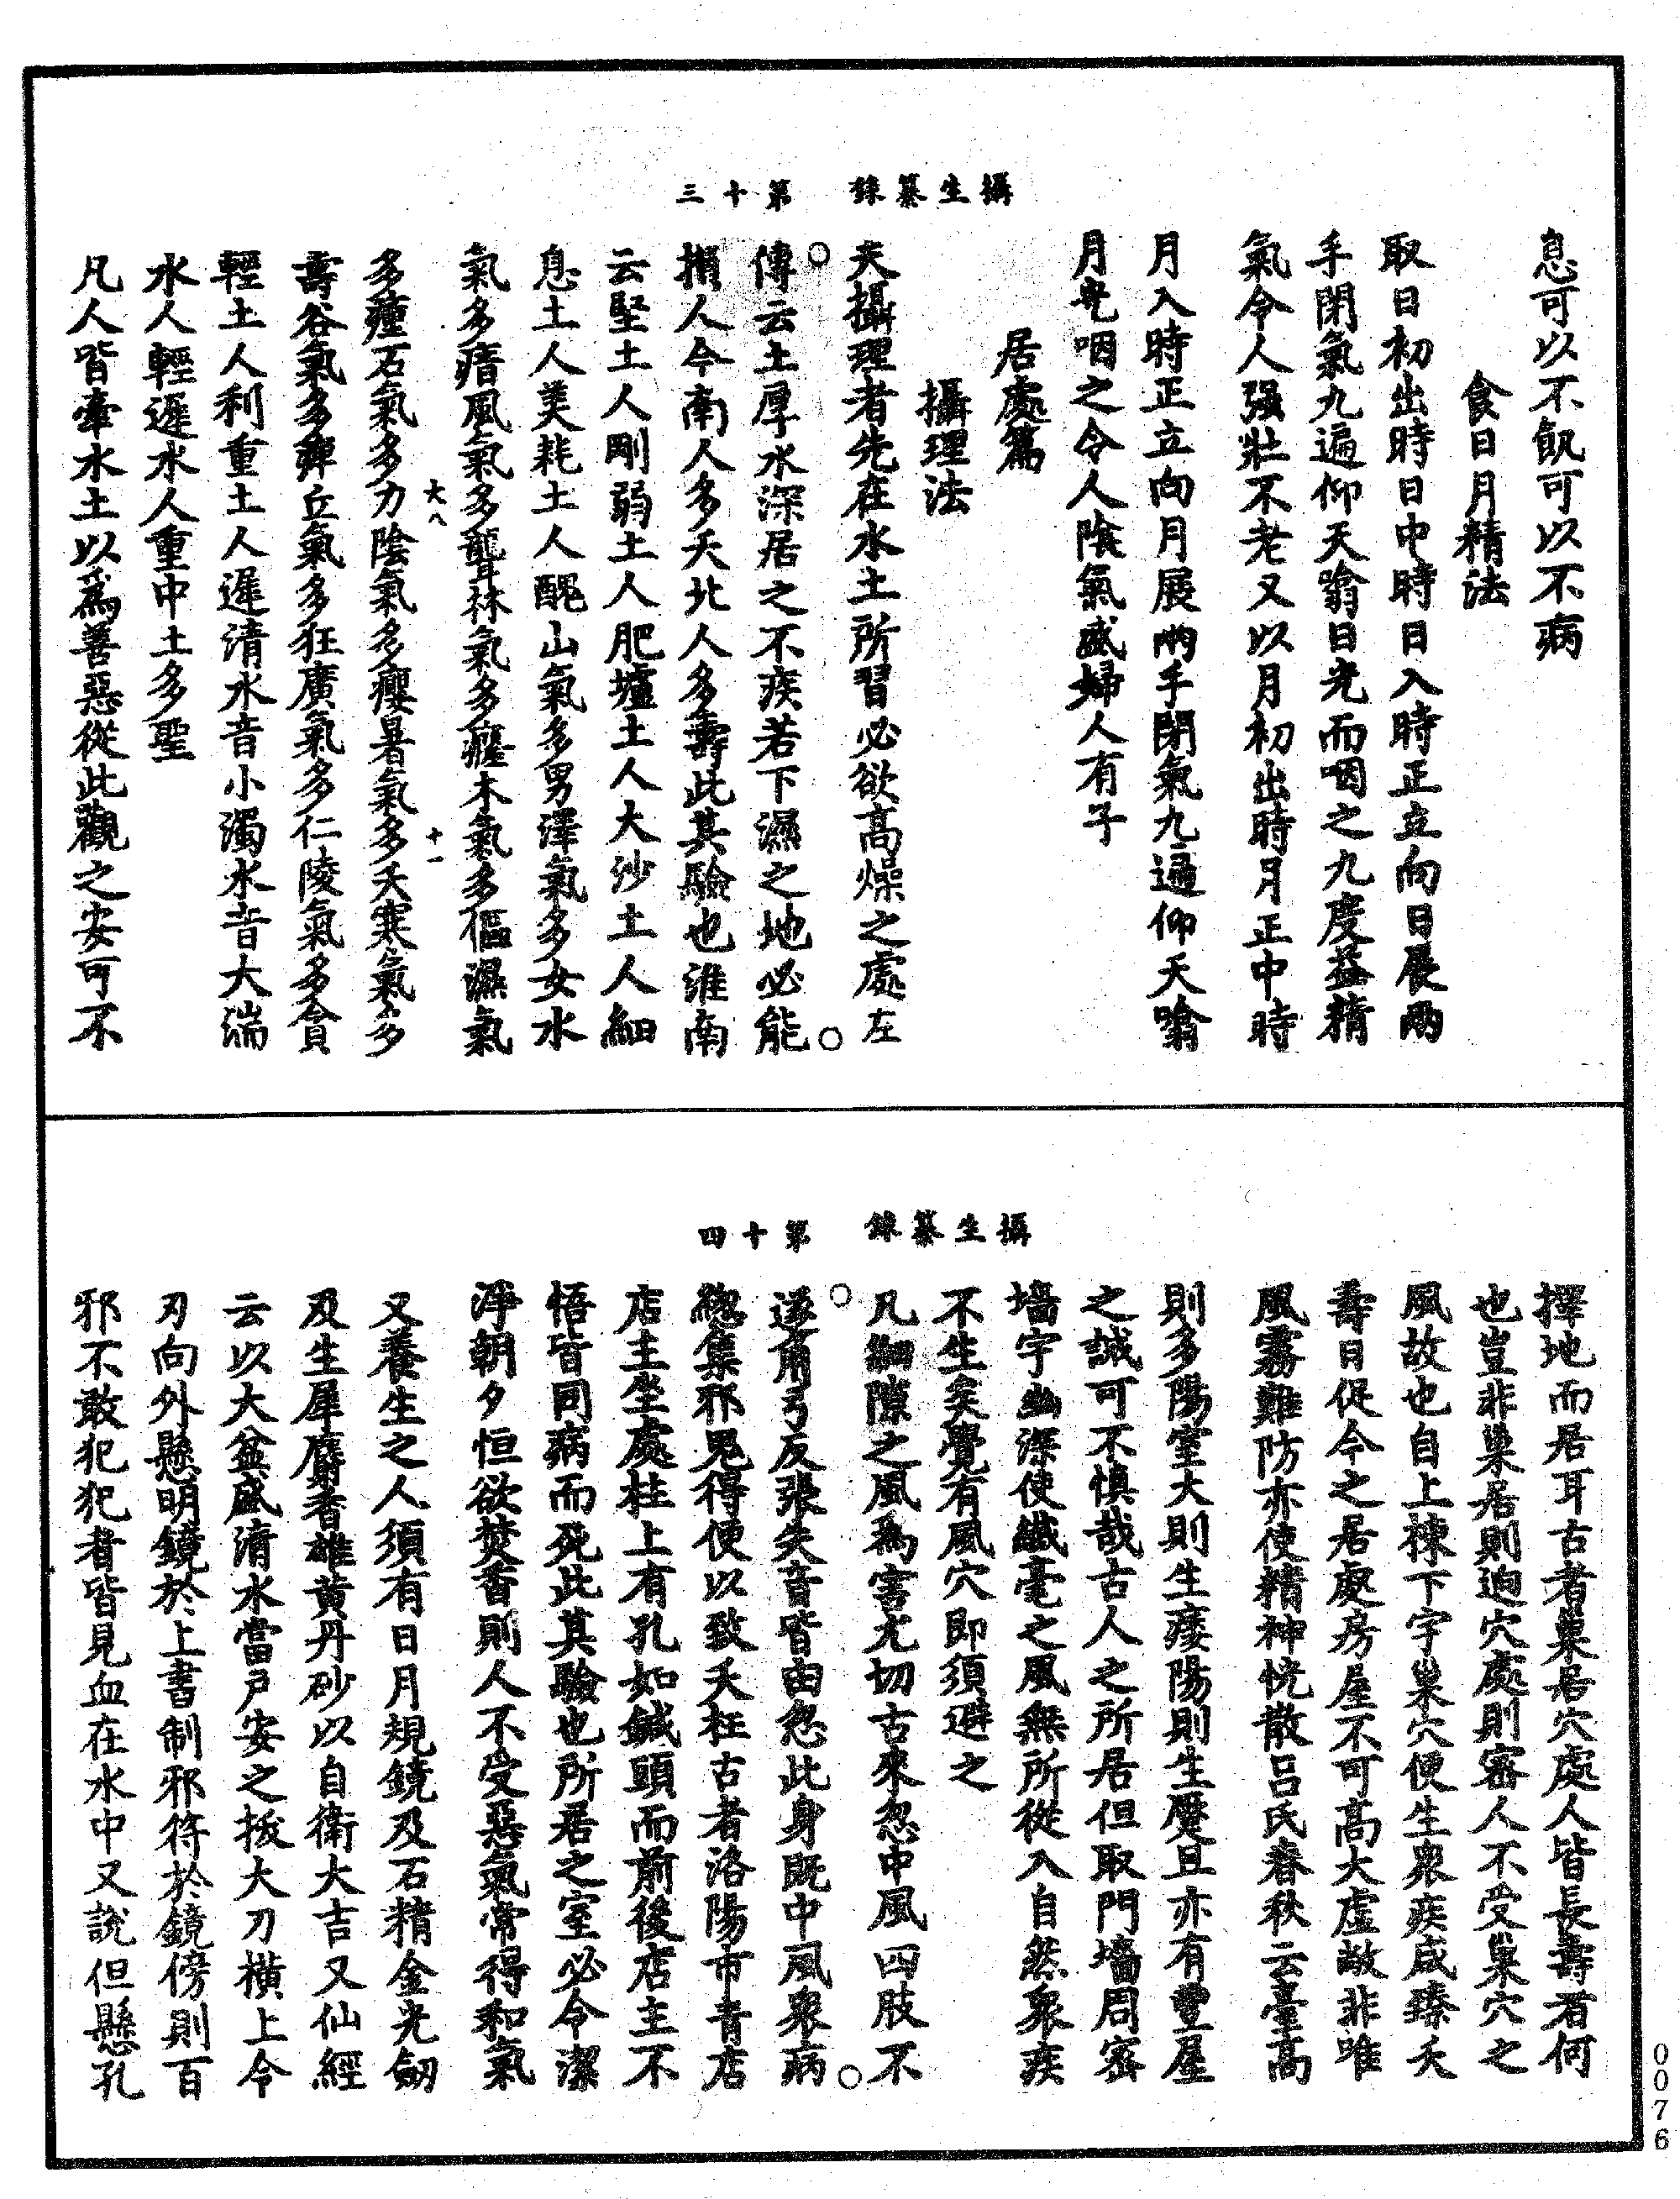 攝生纂錄　第十三
息可以不飢可以不病
食日月精法
取日初出時日中時日入時正立向日展兩
手閉氣九遍仰天噏日光而咽之九度益精
氣令人强壯不老又以月初出時月正中時
月入時正立向月展兩手閉氣九遍仰天噏
月光咽之令人陰氣盛婦人有子
居處篇
攝理法
夫攝理者先在水土所習必欲高燥之處左
傳云土厚水深居之不疾若下濕之地必能
損人今南人多夭北人多壽此其驗也淮南
云堅土人剛弱土人肥壚土人大沙土人細
息土人美耗土人醜山氣多男澤氣多女水
氣多瘖風氣多聾林氣多癃木氣多傴濕氣
大八　十一
多瘇石氣多力陰氣多癭暑氣多夭寒氣多
壽谷氣多痺丘氣多狂廣氣多仁陵氣多貪
輕土人利重土人遲清水音小濁水音大湍
水人輕遲水人重中土多聖
凡人皆牽水土以爲善惡從此觀之安可不
攝生纂錄　第十四
擇地而居耳古者巢居穴處人皆長壽若何
也豈非巢居則迥穴處則密人不受巢穴之
風故也自上棟下宇巢穴便生衆疾咸臻夭
壽日促今之居處房屋不可高大虛敞非唯
風霧難防亦使精神恍散吕氏春秋云臺高
則多陽室大則生痿陽則生蹷且亦有豐屋
之誡可不慎哉古人之所居但取門墻周密
墻宇幽深使纖毫之風無所從入自然衆疾
不生矣覺有風穴即須避之
凡細隙之風為害尤切古來忽中風四肢不
遂角弓反張失音皆由忽此身既中風衆病
總集邪鬼得便以致夭枉古者洛陽市青店
店主坐處柱上有孔如鍼頭而前後店主不
悟皆同病而死此其驗也所居之室必令潔
淨朝夕恒欲焚香則人不受惡氣常得和氣
又養生之人須有日月規鏡及石精金光劒
及生犀麝香雄黃丹砂以自衛大吉又仙經
云以大盆盛清水當戶安之拔大刀橫上令
刃向外懸明鏡於上書制邪符於鏡傍則百
邪不敢犯犯者皆見血在水中又說但懸孔
0076